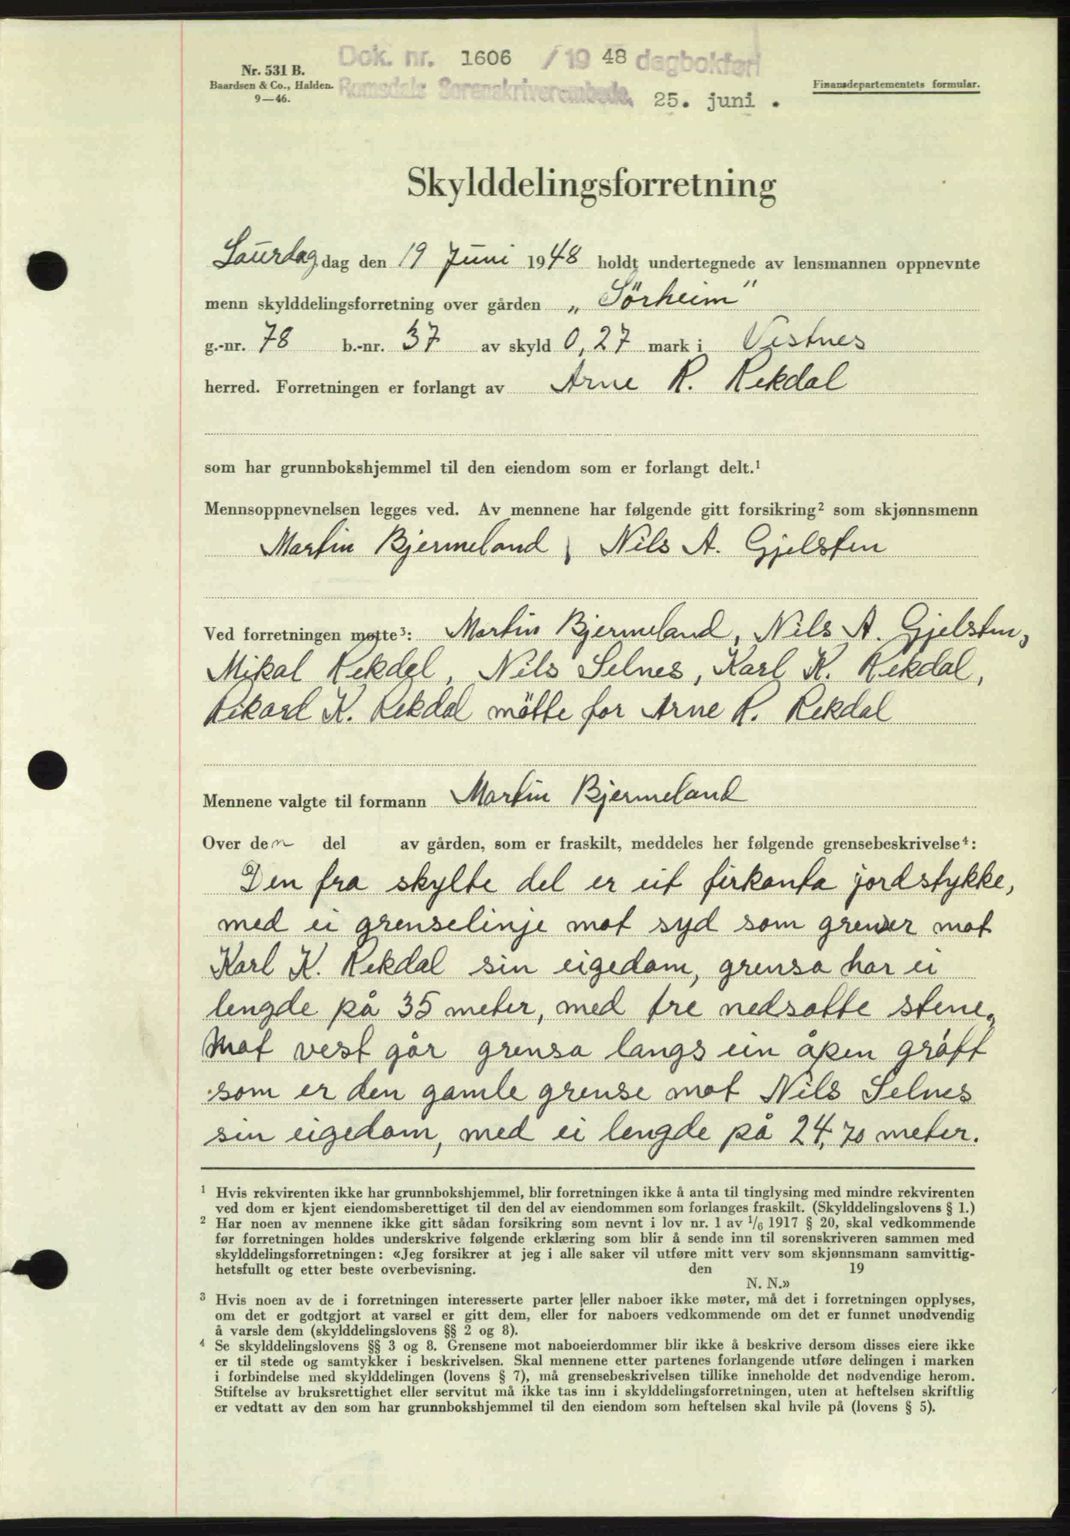 Dok. nr. 1606 / 1948 dagbokført
Romsdals Sorenskriverembede. 25. juni .
Nr. 531 B.
Baardsen & Co., Halden.
9—46.
Finansdepartementets formular.
Skylddelingsforretning
Laurdag dag den 19 Juni 1948 holdt undertegnede av lensmannen oppnevnte
menn skylddelingsforretning over gården „Sörheim"
g.-nr. 78 b.-nr. 37 av skyld 0,27 mark i Vestnes
herred. Forretningen er forlangt av Arne R. Rekdal
som har grunnbokshjemmel til den eiendom som er forlangt delt.¹
Mennsoppnevnelsen legges ved. Av mennene har følgende gitt forsikring² som skjønnsmenn
Martin Bjermeland, Nils A. Gjelsten
Ved forretningen møtte³: Martin Bjermeland, Nils A. Gjelsten,
Mikal Rekdal, Nils Selnes, Karl K. Rekdal,
Rikard K. Rekdal mötte for Arne R. Rekdal
Mennene valgte til formann Martin Bjermeland
Over den del av gården, som er fraskilt, meddeles her følgende grensebeskrivelse⁴:
Den fra skylte del er eit firkanta jordstykke,
med ei grenselinje mot syd som grenser mot
Karl K. Rekdal sin eigedom, grensa har ei
lengde på 35 meter, med tre nedsatte stene.
Mot vest går grensa langs ein åpen gröft
som er den gamle grense mot Nils Selnes
sin eigedom, med ei lengde på 24,70 meter.
¹ Hvis rekvirenten ikke har grunnbokshjemmel, blir forretningen ikke å anta til tinglysing med mindre rekvirenten
ved dom er kjent eiendomsberettiget til den del av eiendommen som forlanges fraskilt. (Skylddelingslovens § 1.)
² Har noen av mennene ikke gitt sådan forsikring som nevnt i lov nr. 1 av 1/6 1917 § 20, skal vedkommende
før forretningen holdes underskrive følgende erklæring som blir å sende inn til sorenskriveren sammen med
skylddelingsforretningen: «Jeg forsikrer at jeg i alle saker vil utføre mitt verv som skjønnsmann samvittig-
hetsfullt og etter beste overbevisning. den 19
N. N.»
³ Hvis noen av de i forretningen interesserte parter eller naboer ikke møter, må det i forretningen opplyses,
om det er godtgjort at varsel er gitt dem, eller for naboers vedkommende om det er funnet unødvendig
å varsle dem (skylddelingslovens §§ 2 og 8).
⁴ Se skylddelingslovens §§ 3 og 8. Grensene mot naboeierdommer blir ikke å beskrive dersom disses eiere ikke
er til stede og samtykker i beskrivelsen. Skal mennene etter partenes forlangende utføre delingen i marken
i forbindelse med skylddelingen (lovens § 7), må grensebeskrivelsen tillike inneholde det nødvendige herom.
Stiftelse av bruksrettighet eller servitut må ikke tas inn i skylddelingsforretningen, uten at heftelsen skriftlig
er vedtatt av den som har grunnbokshjemmel til den eiendom som heftelsen skal hvile på (lovens § 5).